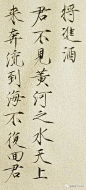 將進酒
君不見黃河之水天上
來奔流到海不復回君